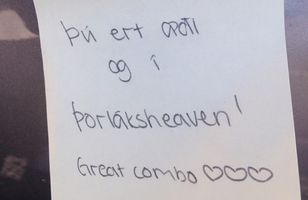 Þú ert æði
og í
Þorláksheaven!
Great combo ♡♡♡